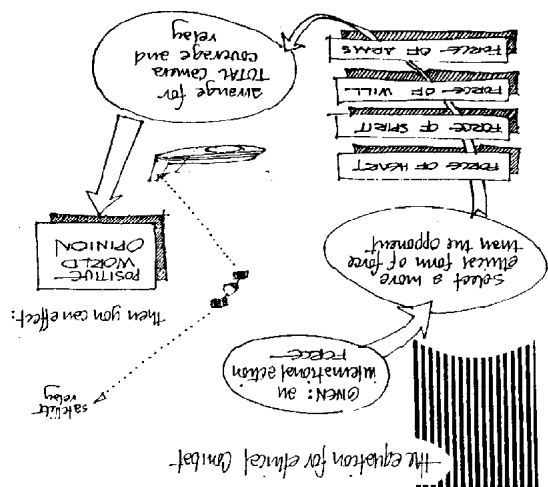 the equation for ethical combat
GIVEN: an
international action
FORCE
select a more
ethical form of force
than the opponent
FORCE OF HEART
FORCE OF SPIRIT
FORCE OF WILL
FORCE OF ARMS
arrange for
TOTAL camera
coverage and
relay
satellite
relay
then you can effect:
POSITIVE
WORLD
OPINION